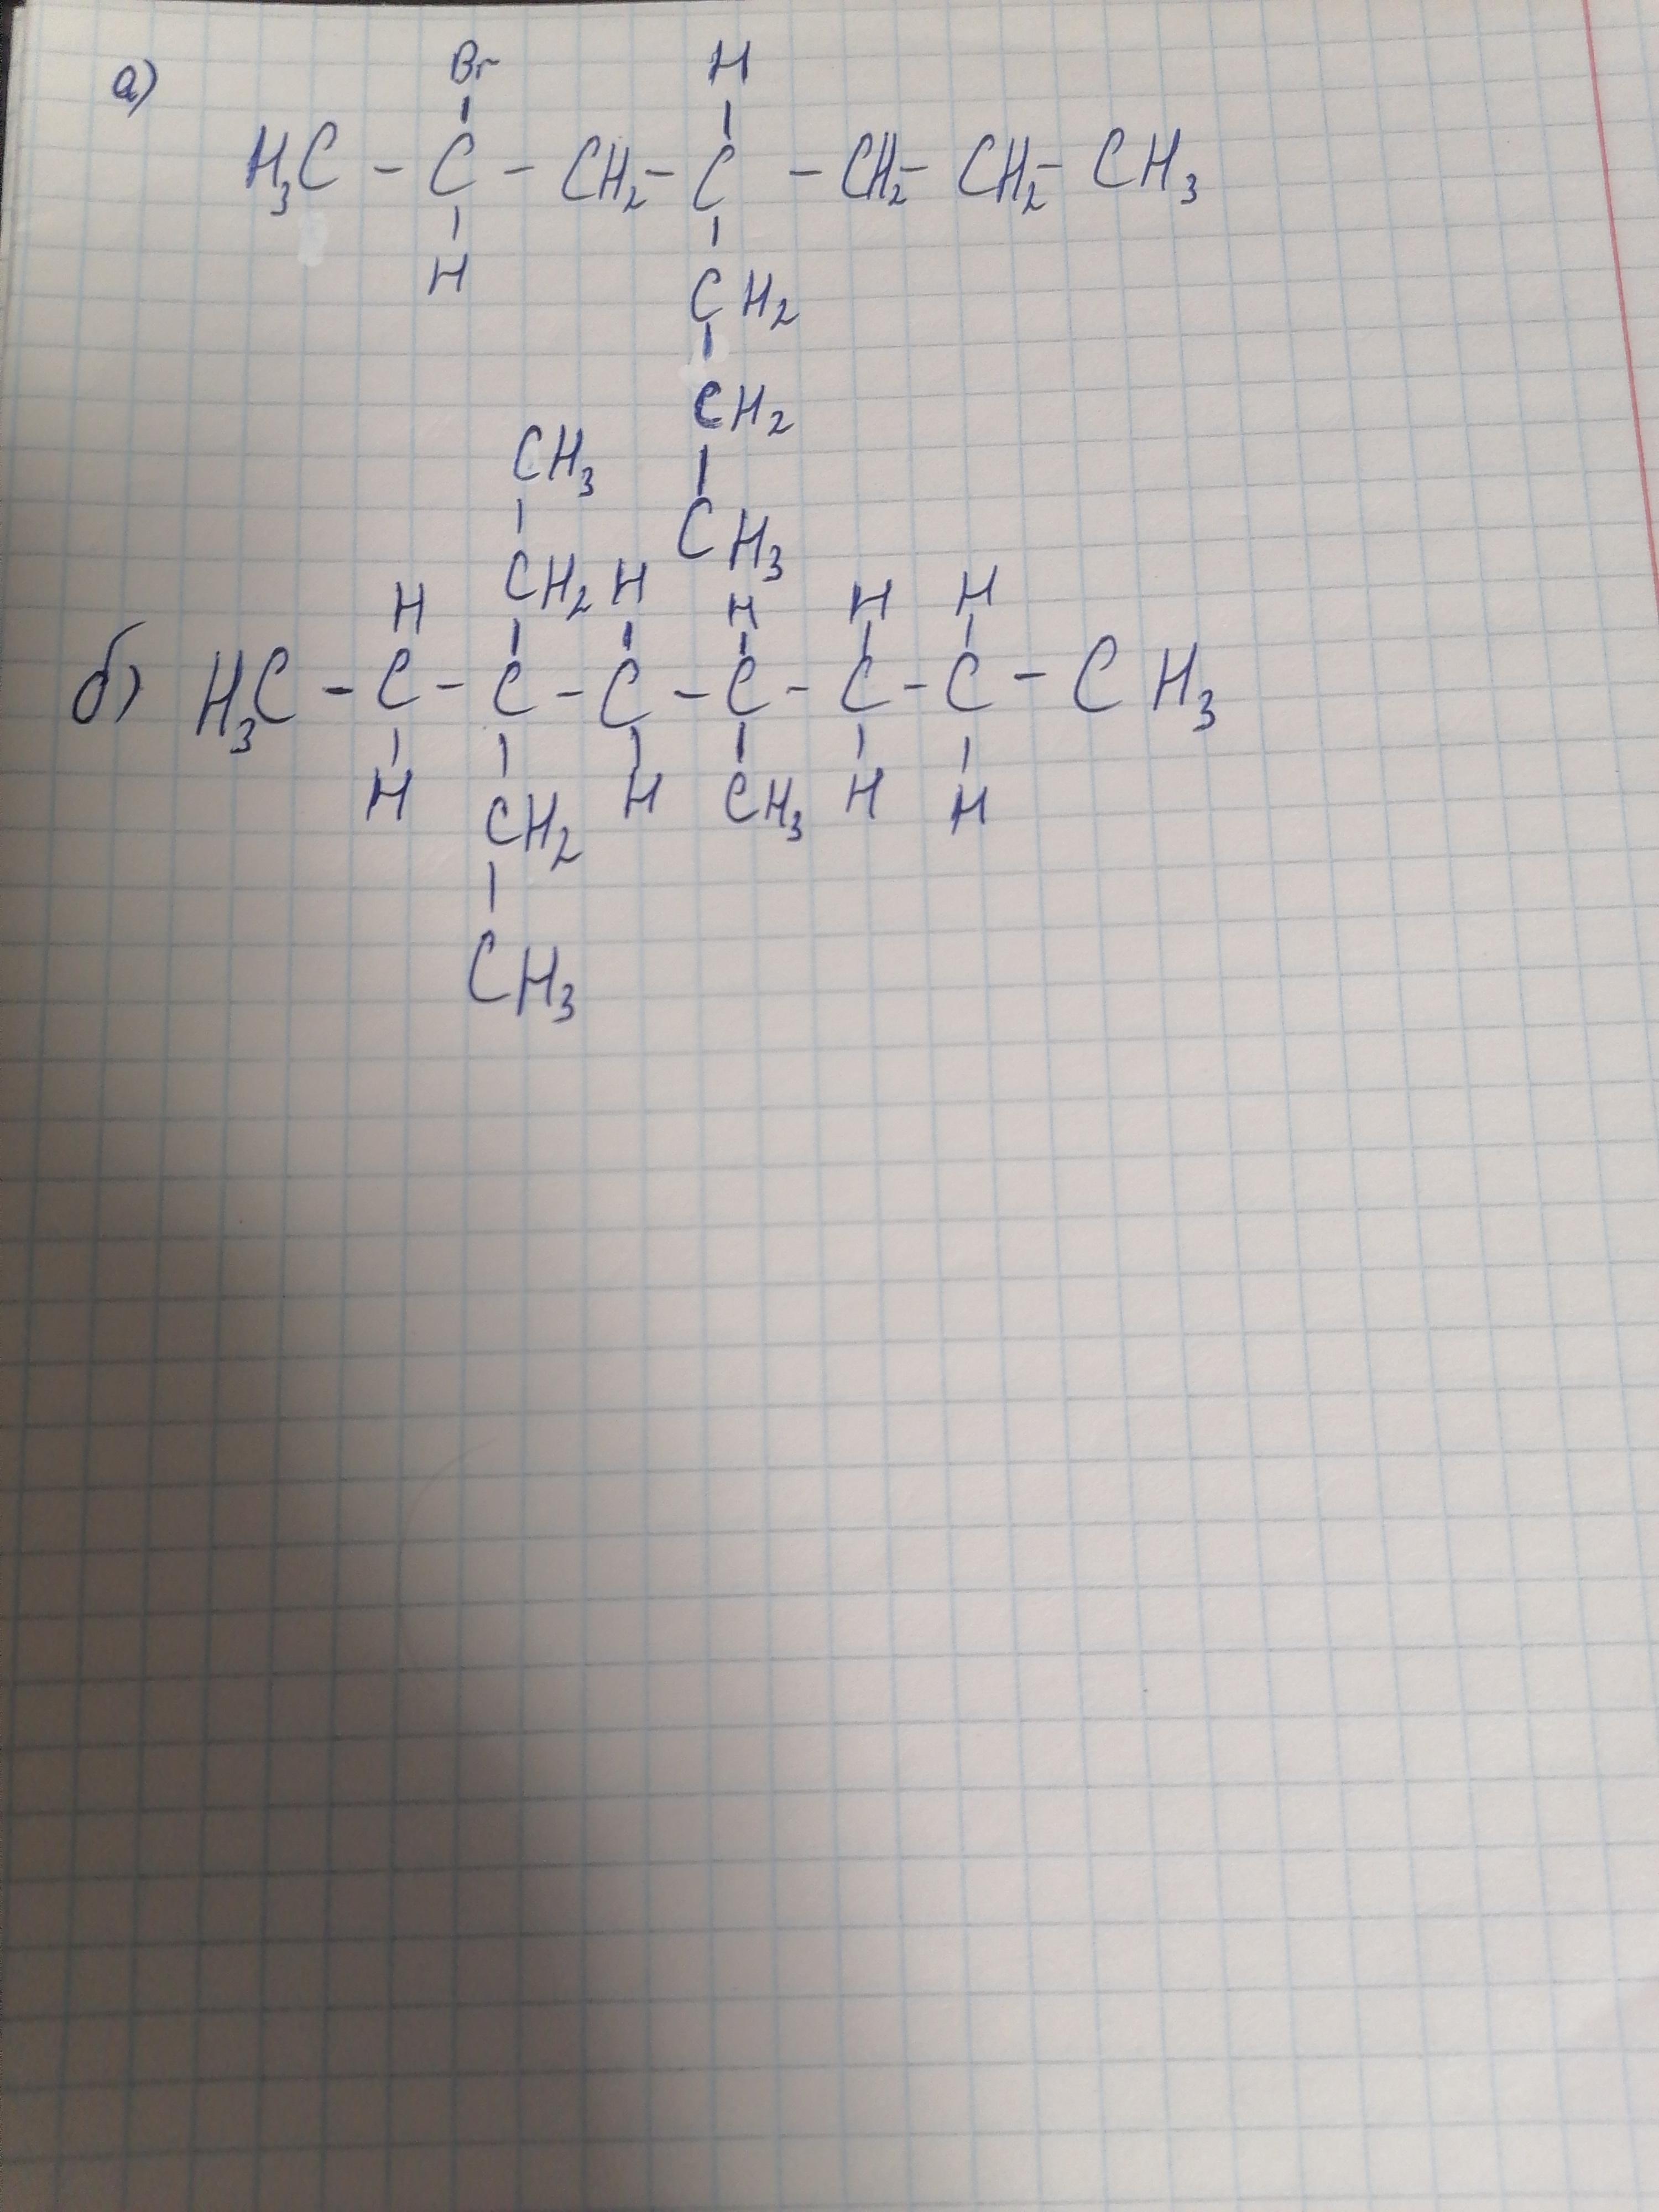 а)
Br H
H₃C - C - CH₂ - C - CH₂ - CH₂ - CH₃
H
CH₂
CH₂
CH₃
CH₃
CH₂
H H H H H
б) H₃C - C - C - C - C - C - C - CH₃
H CH₂ H CH₃ H H
CH₃